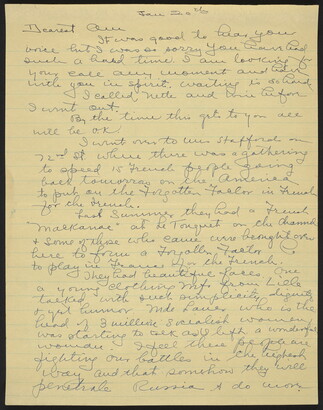 Jan 20th
Dearest Ann
It was good to hear your
voice but I was so sorry you had had
such a hard time. I am looking for
your call any moment and am
with you in spirit. Waiting is so hard.
I called Nette and Win before
I went out.
By the time this gets to you all
will be OK.
I went over to Mrs Staffords on
72nd St where there was a gathering
to speed 15 French people going
back tomorrow on the America
to put on the Forgotten Factor in French
for the French.
Last Summer they had a French
"Mackanac" at Le Touquet on the Channel
& some of those who came were brought over
here to form a Forgotten Factor
to play in France for the French.
They had beautiful faces, one
a young clothing Mfr. from Lille
talked with such simplicity, dignity
& yet humor. Mde Laure who is the
head of 3 million Socialist women
was starting to set all left a wonderful
woman. I feel these people are
fighting our battles in the highest
way and that somehow they will
penetrate Russia & do more